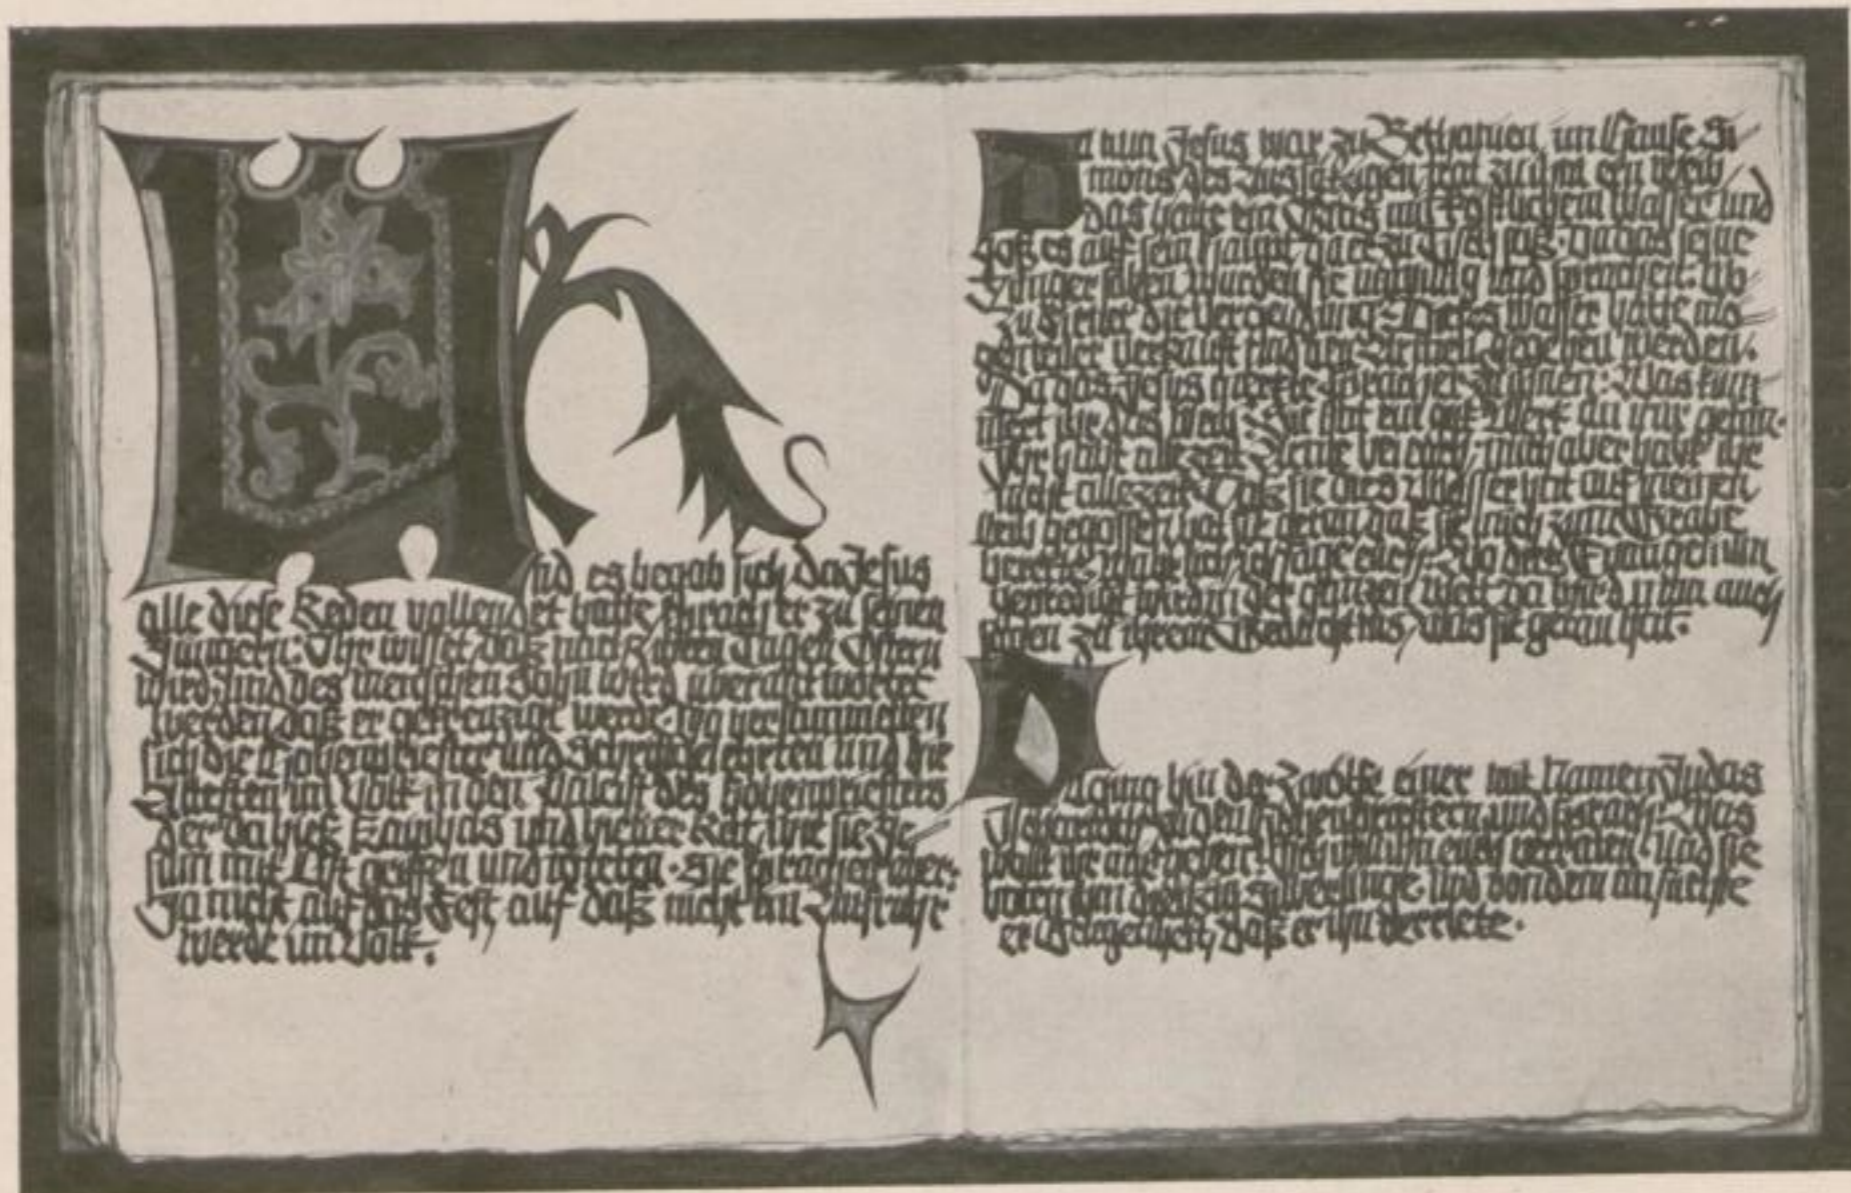 Und es begab sich, da Jesus
alle diese Reden vollendet hatte, sprach er zu seinen
Jüngern: Ihr wisset, daß nach zween Tagen Ostern
wird, und des Menschen Sohn wird überantwortet
werden, daß er gekreuziget werde. Da versammelten
sich die Hohenpriester und Schriftgelehrten und die
Ältesten im Volk in den Palast des Hohenpriesters
der da hieß Kaiphas und hielten Rat, wie sie Je-
sum mit List griffen und töteten. Sie sprachen aber:
Ja nicht auf das Fest, auf daß nicht ein Aufruhr
werde im Volk.
Da nun Jesus war zu Bethanien im Hause Si-
mons des Aussätzigen, trat zu ihm ein Weib
das hatte ein Glas mit köstlichem Wasser und
goß es auf sein Haupt, da er zu Tisch saß. Da das seine
Jünger sahen wurden sie unwillig und sprachen: Wo
zu dienet die Vergeudung? Dieses Wasser hätte mö-
gen teuer verkauft und den Armen gegeben werden.
Da das Jesus merkte sprach er zu ihnen: Was küm
mert ihr das Weib? Sie hat ein gut Werk an mir getan.
Ihr habt allezeit Arme bei euch, mich aber habt ihr
nicht allezeit. Daß sie dies Wasser hat auf meinen
Leib gegossen hat sie getan daß sie mich zum Grabe
bereite. Wahrlich ich sage euch: Wo dies Evangelium
geprediget wird in der ganzen Welt, da wird man auch
sagen zu ihrem Gedächtnis, was sie getan hat.
Da ging hin der Zwölfe einer mit Namen Judas
Ischarioth zu den Hohenpriestern und sprach: Was
wollt ihr mir geben? Ich will ihn euch verraten. Und sie
boten ihm dreißig Silberlinge. Und von dem an suchte
er Gelegenheit, daß er ihn verriete.